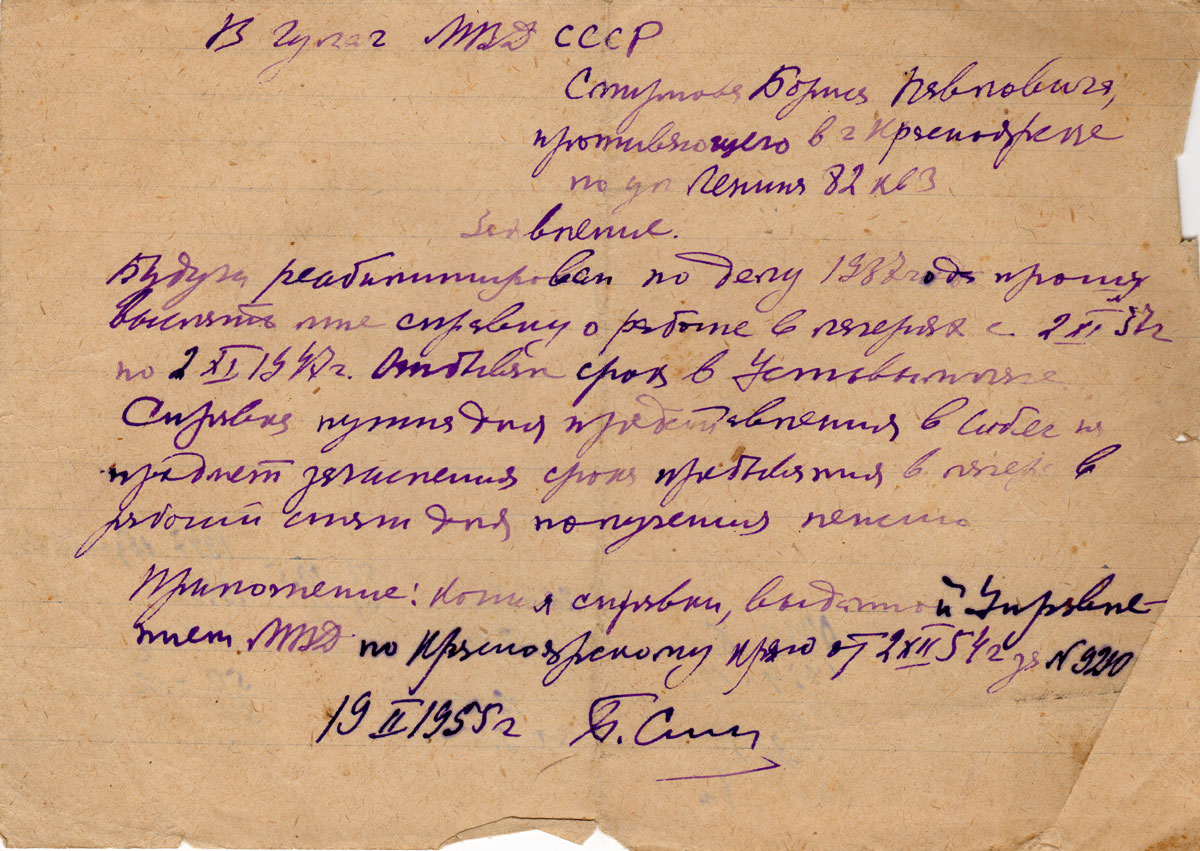 В Гулаг МВД СССР
Смирнова Бориса Павловича,
проживающего в г Красноярске
по ул Ленина 82 кв 3
Заявление.
Будучи реабилитирован по делу 1937 года прошу
выслать мне справку о работе в лагерях с 2 XI 37 г
по 2 XI 1947 г. Отбывал срок в Устьвымлаге
Справка нужна для представления в Собес на
предмет зачисления срока пребывания в лагере в
рабочий стаж для получения пенсии
Приложение: Копия справки, выданной Управле-
нием МВД по Красноярскому краю от 2 XII 54 г за №
19 II 1955 г Б. Смир